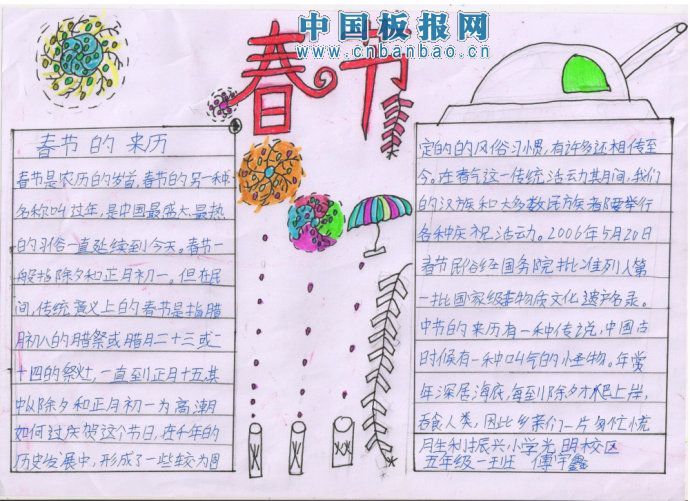 中国板报网
www.cnbanbao.cn
春节
春节的来历
春节是农历的岁首,春节的另一种
名称叫过年,是中国最盛大、最热
的习俗一直延续到今天。春节一
般指除夕和正月初一。但在民
间,传统意义上的春节是指腊
月初八的腊祭或腊月二十三或二
十四的祭灶,一直到正月十五,其
中以除夕和正月初一为高潮
如何过庆贺这个节日,在千年的
历史发展中,形成了一些较为固
定的的风俗习惯,有许多还相传至
今。在春节这一传统活动其月间,我们
的汉族和大多数民族者都要举行
各种庆祝活动。2006年5月20日
春节民俗经国务院批准列入第
一批国家级非物质文化遗产名录。
中节的来历有一种传说,中国古
时候有一种叫气的小圣物。年
年深居海底,每到除夕才爬上岸,
吞食人类,因此乡亲们一片匆忙慌
月生利振兴小学光明校区
五年级一班 傅宇鑫